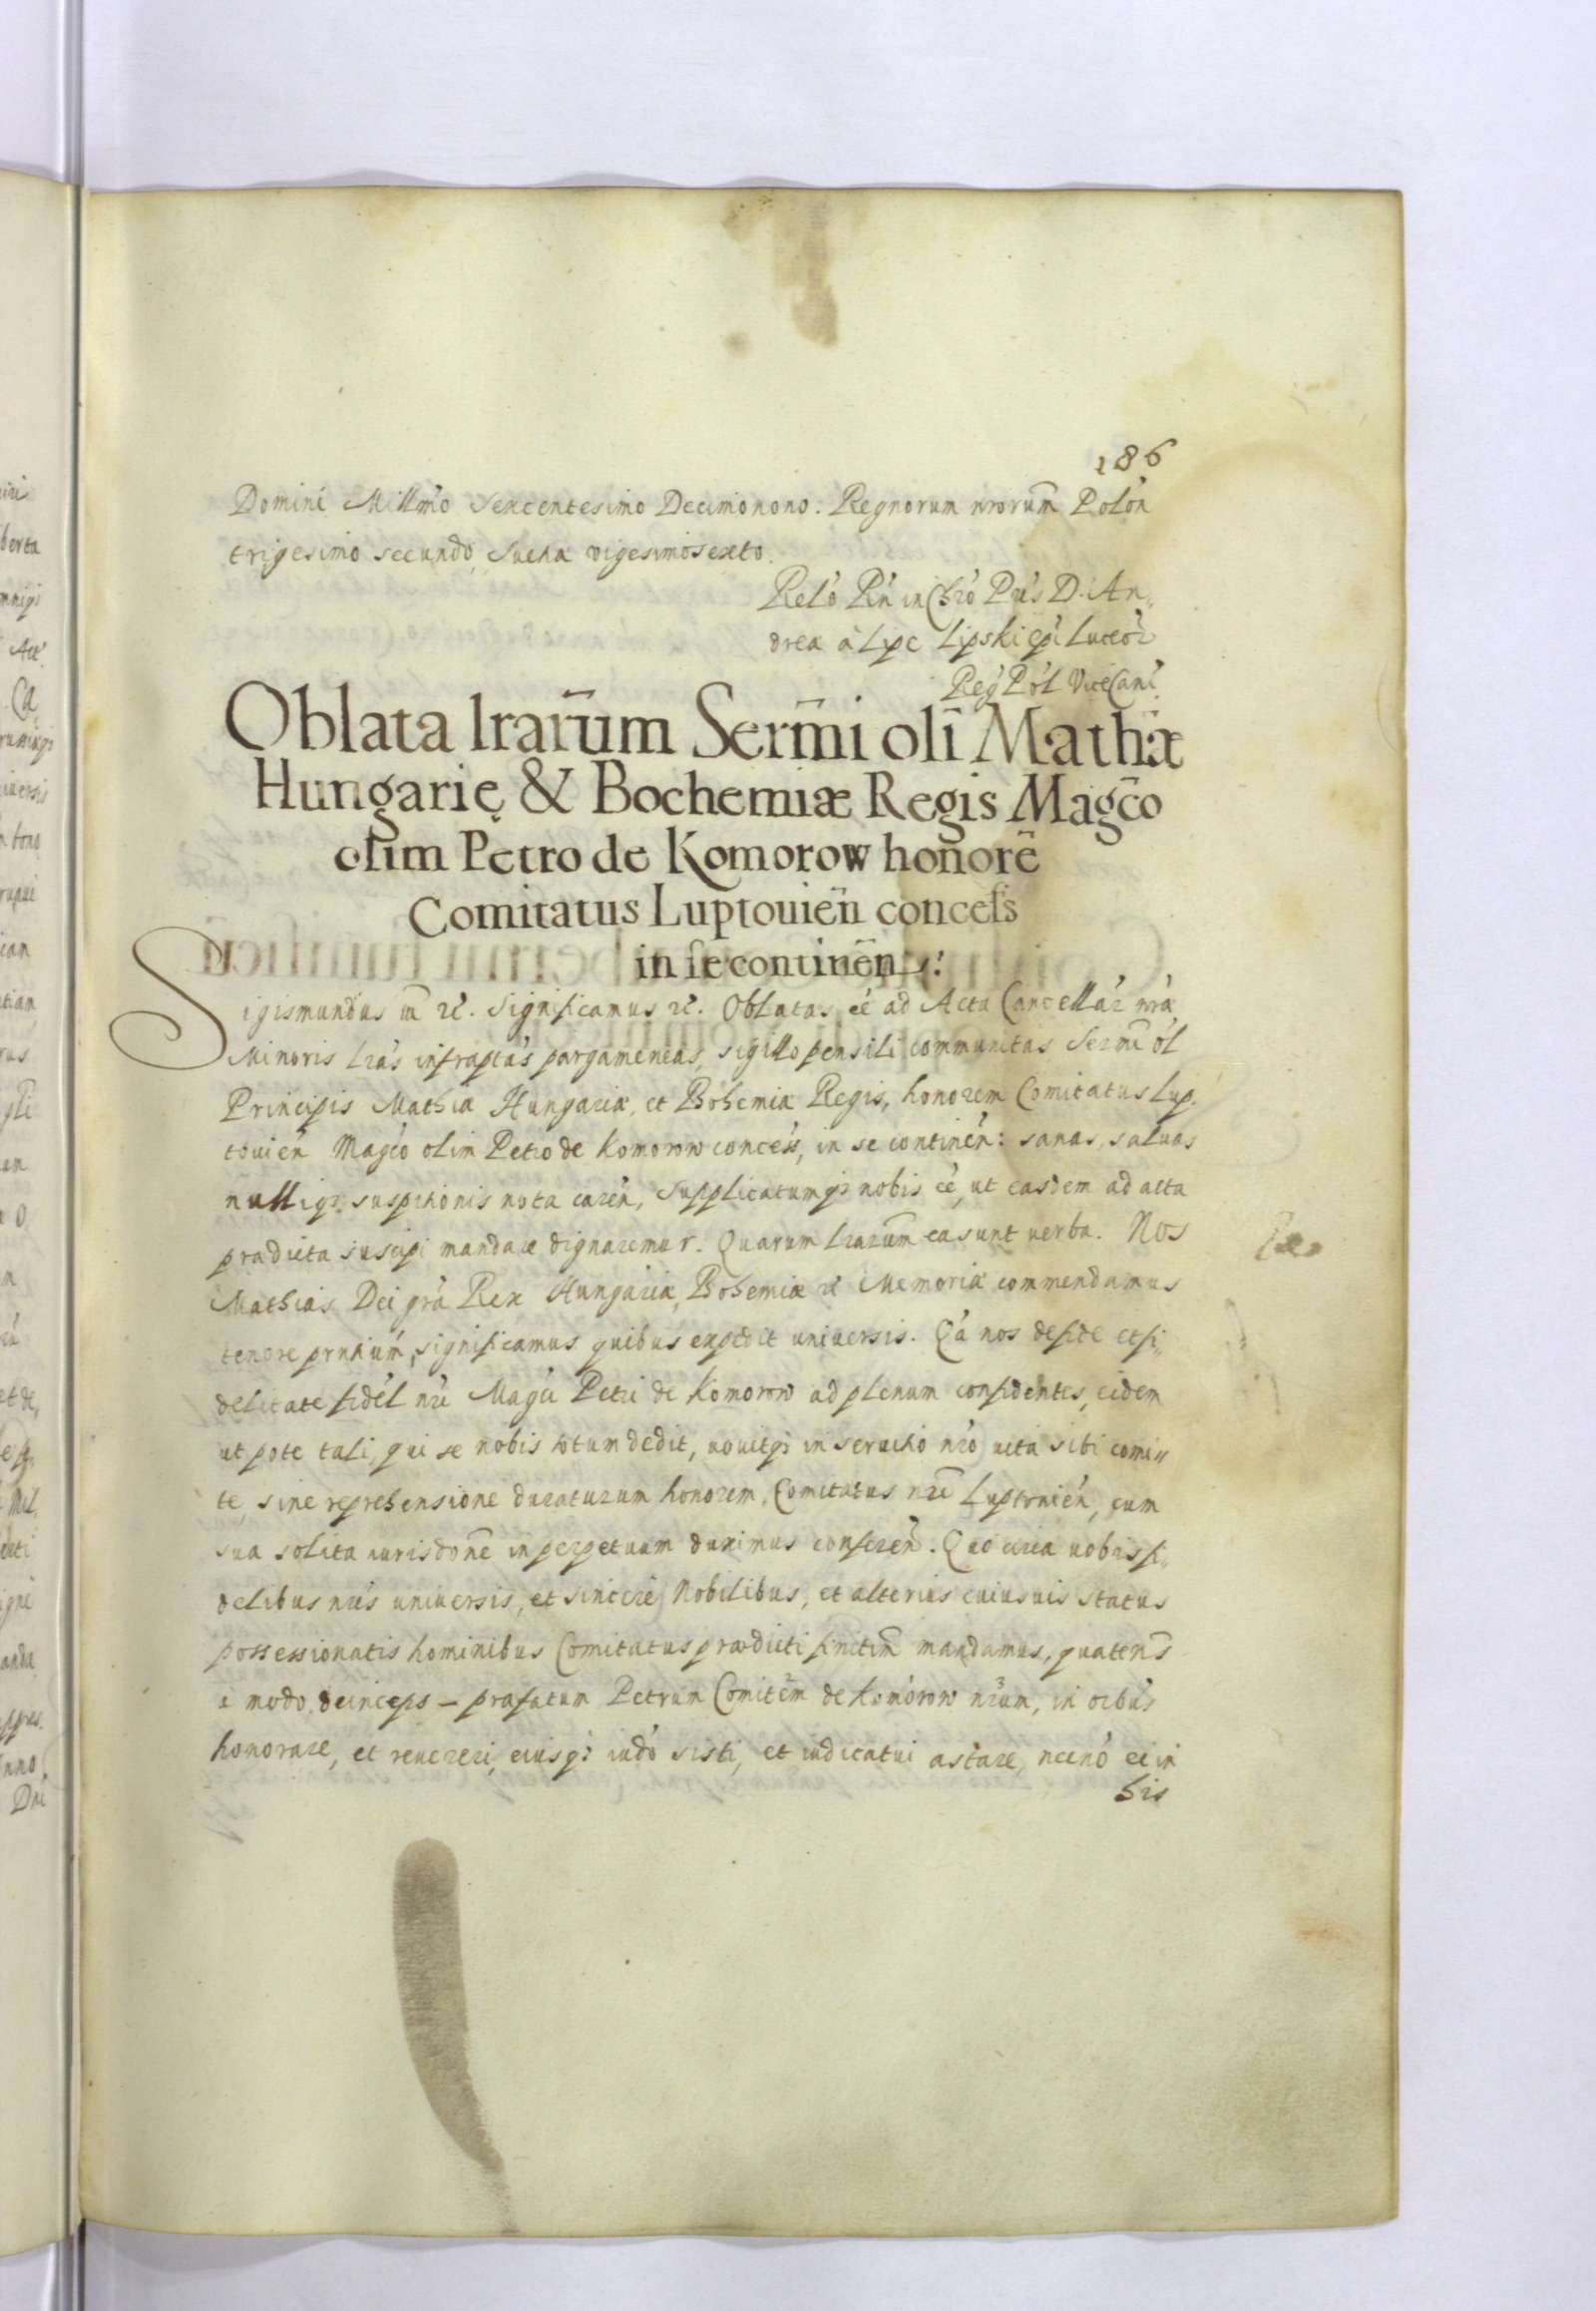 186
Domini Millmo Sexcentesimo Decimonono: Regnorum nrorum Polon
trigesimo secundo, Suetiæ vigesimosexto.
Relo Rn in Chro Pris D. An„
drea à Lipe Lipski epi Luceor
Reg Pol ViceCanc
Oblata lrarum Sermi oli Mathiæ
Hungarię & Bochemiæ Regis Magco
olim Petro de Komorow honorē
Comitatus Luptouien concess
in se continen:
Sigismundus III etc. Significamus etc. Oblatas eē ad Acta Cancellar nræ
Minoris lras infraptas pargameneas, sigillo pensili communitas Sermi ol
Principis Mathiæ Hungariæ, et Bohemiæ Regis, honorem Comitatus Lup„
touien Magco olim Petro de Komorow concess, in se continen: sanas, saluas
nulliq; suspitionis nota caren, Supplicatumq; nobis eē, ut easdem ad acta
prædicta suscipi mandare dignaremur. Quarum lrarum ea sunt uerba. Nos
Mathias Dei gra Rex Hungariæ, Bohemiæ etc Memoriæ commendamus
tenore prntium, significamus quibus expedit universis. Qa nos de fide et fi„
delitate fidel nri Magci Petri de Komorow ad plenum confidentes, eidem
ut pote tali, qui se nobis totum dedit, vovitq; in seruitio nro uita sibi comi„
te, sine reprehensione duraturum honorem, Comitatus nri Luptouien, cum
sua solita iurisdone in perpetuum duximus conferen. Quo circa uobis fi„
delibus nris universis, et sincere Nobilibus, et alterius cuiusuis status
possessionatis hominibus Comitatus prædicti firmitm mandamus, quatens
a modo deinceps – præfatum Petrum Comitem de Komorow nrum, in oibus
honorare, et reuereri, eiusq; iudo sisti, et iudicatui astare, necno ei in
his